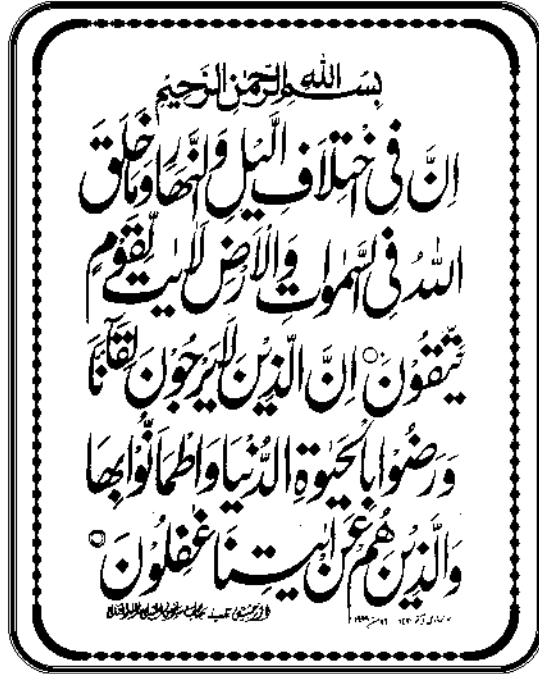 بِسْمِ اللهِ الرَّحْمٰنِ الرَّحِيْمِ
اِنَّ فِي اخْتِلَافِ الَّيْلِ وَالنَّهَارِ وَمَا خَلَقَ
اللهُ فِي السَّمٰوٰتِ وَالْاَرْضِ لَاٰيٰتٍ لِّقَوْمٍ
يَّتَّقُوْنَ ○ اِنَّ الَّذِيْنَ لَا يَرْجُوْنَ لِقَآءَنَا
وَرَضُوْا بِالْحَيٰوةِ الدُّنْيَا وَاطْمَاَنُّوْا بِهَا
وَالَّذِيْنَ هُمْ عَنْ اٰيٰتِنَا غٰفِلُوْنَ ○